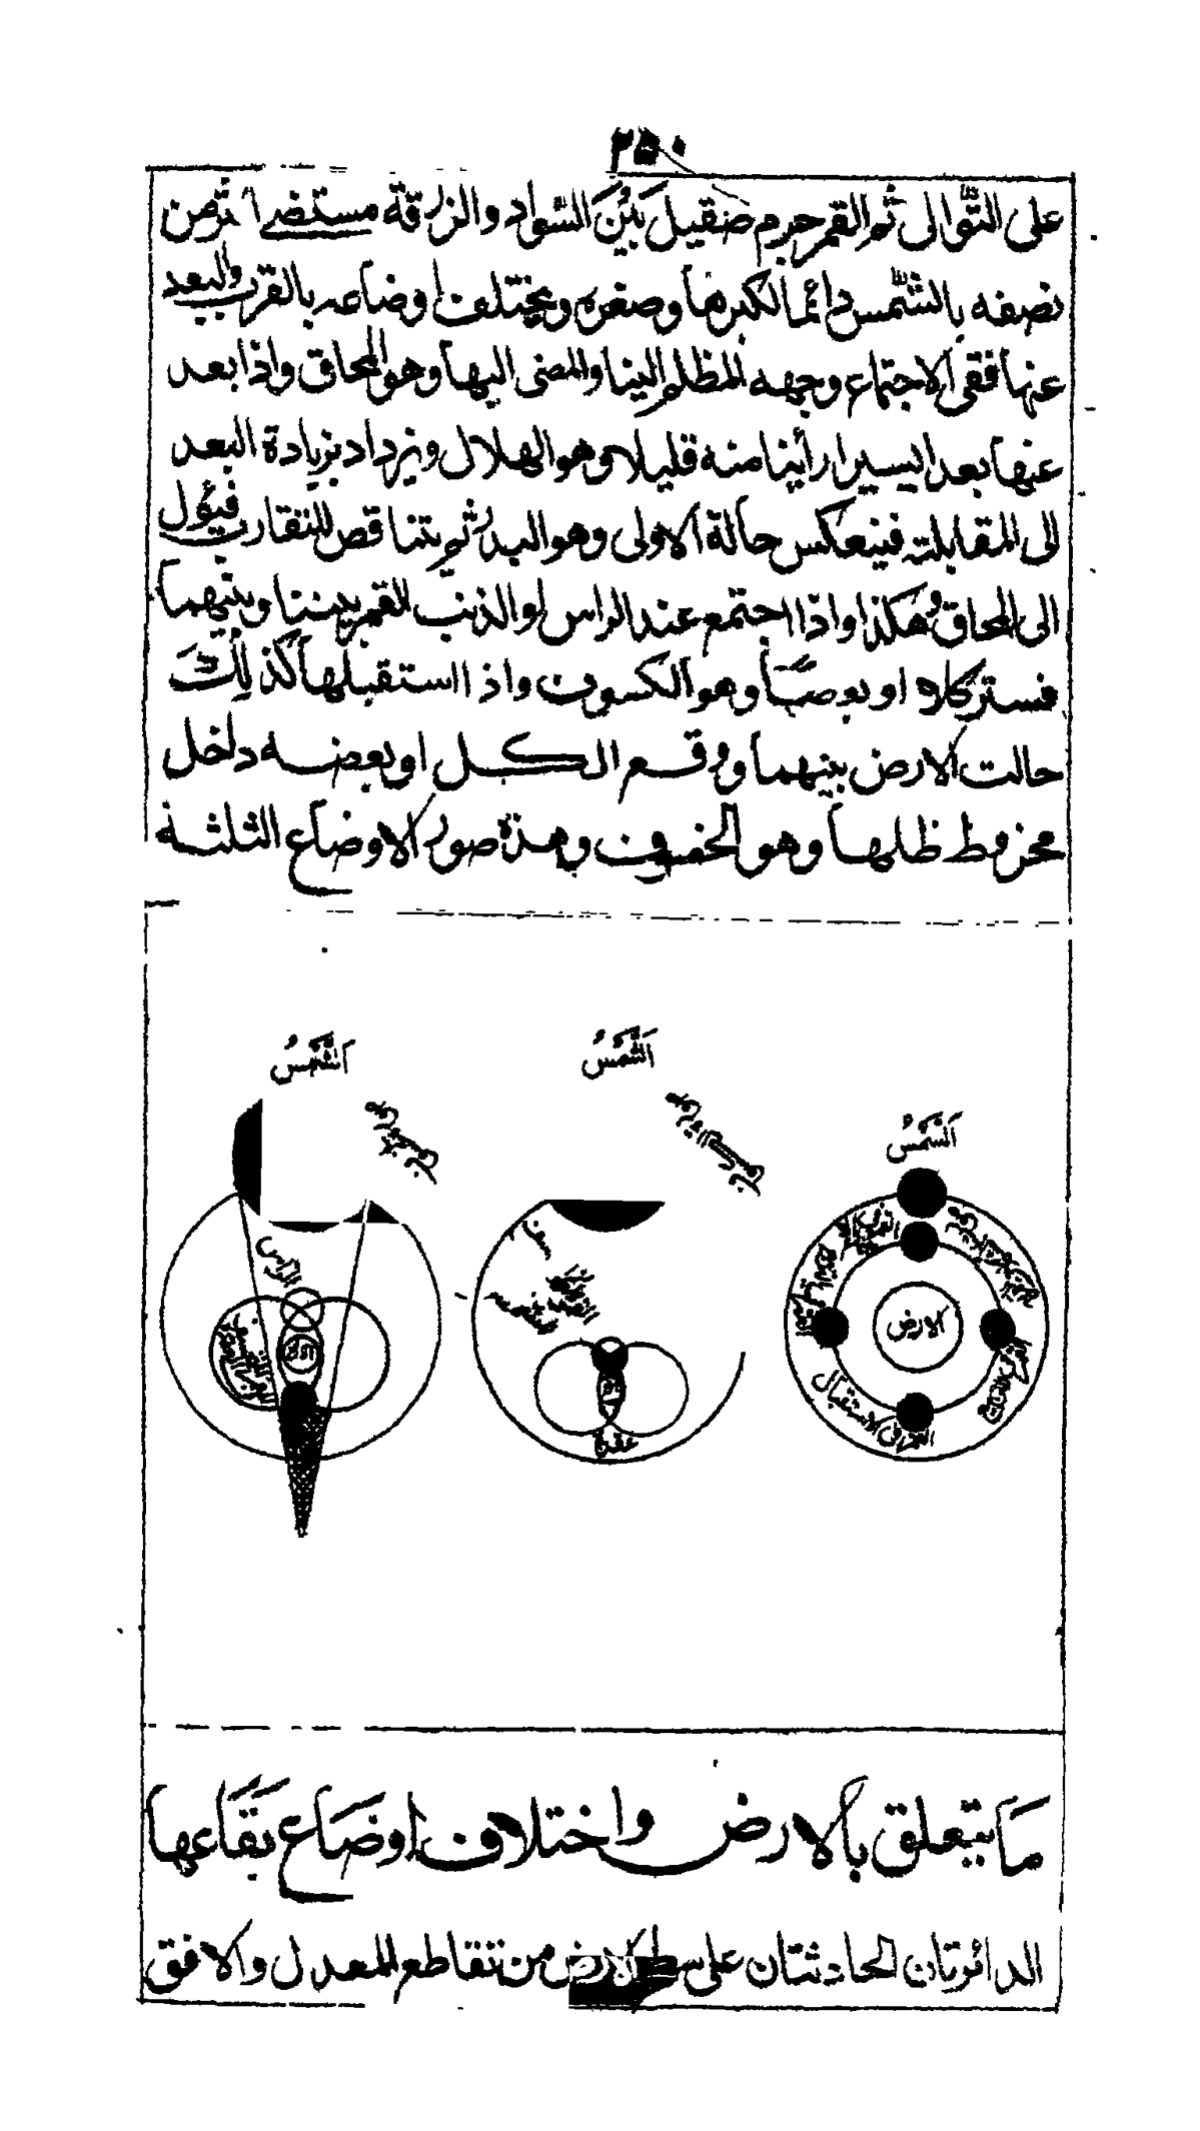 ٢٥٠
على التوالى ثم القمر جرم صقيل بين السواد والزرقة مستضئ ترمن
نصفه بالشمس دائما لكبرها وصغره ويختلف اوضاعه بالقرب والبعد
عنها ففى الاجتماع وجهه المظلم الينا والمضئ اليها وهو المحاق واذا بعد
عنها بعدا يسيرا رأينا منه قليلا وهو الهلال ويزداد بزيادة البعد
الى المقابلة فينعكس حالة الاولى وهو البدر ثم يتناقص للتقارب فيؤل
الى المحاق وهكذا واذا اجتمع عند الراس او الذنب القمر بيننا وبينهما
فستر كلا او بعضا وهو الكسوف واذا استقبلها كذلك
حالت الارض بينهما ووقع الكل او بعضه داخل
مخروط ظلها وهو الخسوف وهذه صور الاوضاع الثلثة
اَلشَّمْسُ
اَلشَّمْسُ
اَلشَّمْسُ
الراس
الارض
القمر فى الاستقبال
عقدة
ما يتعلق بالارض واختلاف اوضاع بقاعها
الدائرتان الحادثتان على سطح الارض من تقاطع المعدل والافق